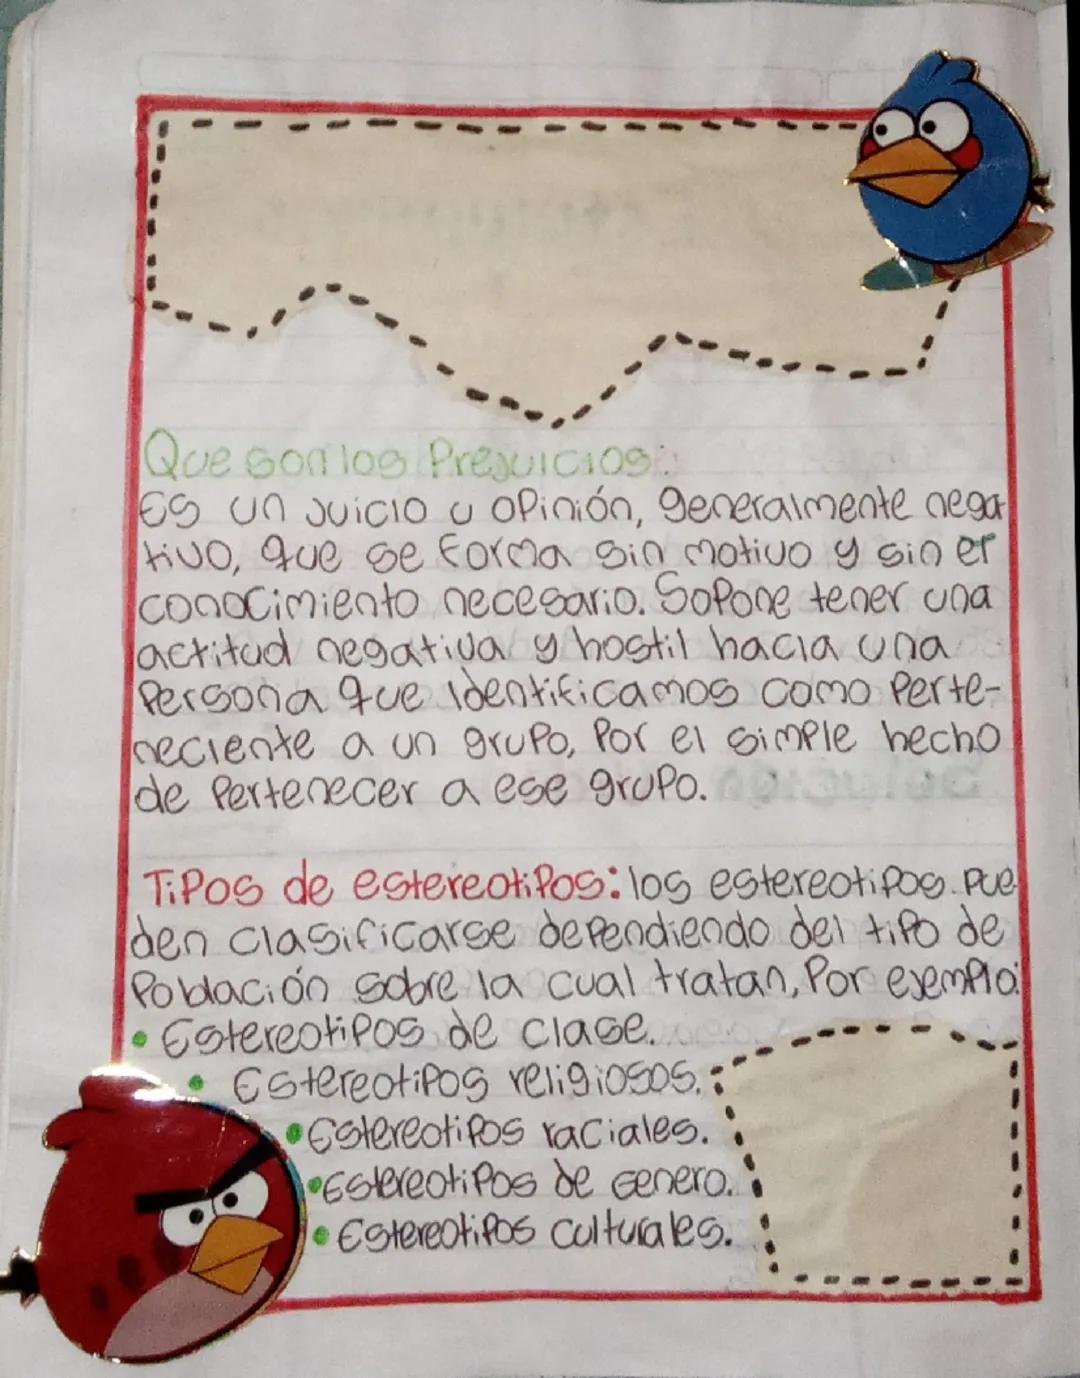 Que son los Prejuicios:
Es un juicio u opinión, generalmente nega
tivo, que se forma sin motivo y sin er
conocimiento necesario. Sopone tener una
actitud negativa y hostil hacia una
Persona que identificamos como Perte-
neciente a un grupo, Por el simple hecho
de Pertenecer a ese grupo.
Tipos de estereotipos: los estereotipos pue
den clasificarse dependiendo del tipo de
Población sobre la cual tratan, Por ejemplo:
• Estereotipos de clase.
• Estereotipos religiosos.
• Estereotipos raciales.
• Estereotipos de Genero.
• Estereotipos culturales.